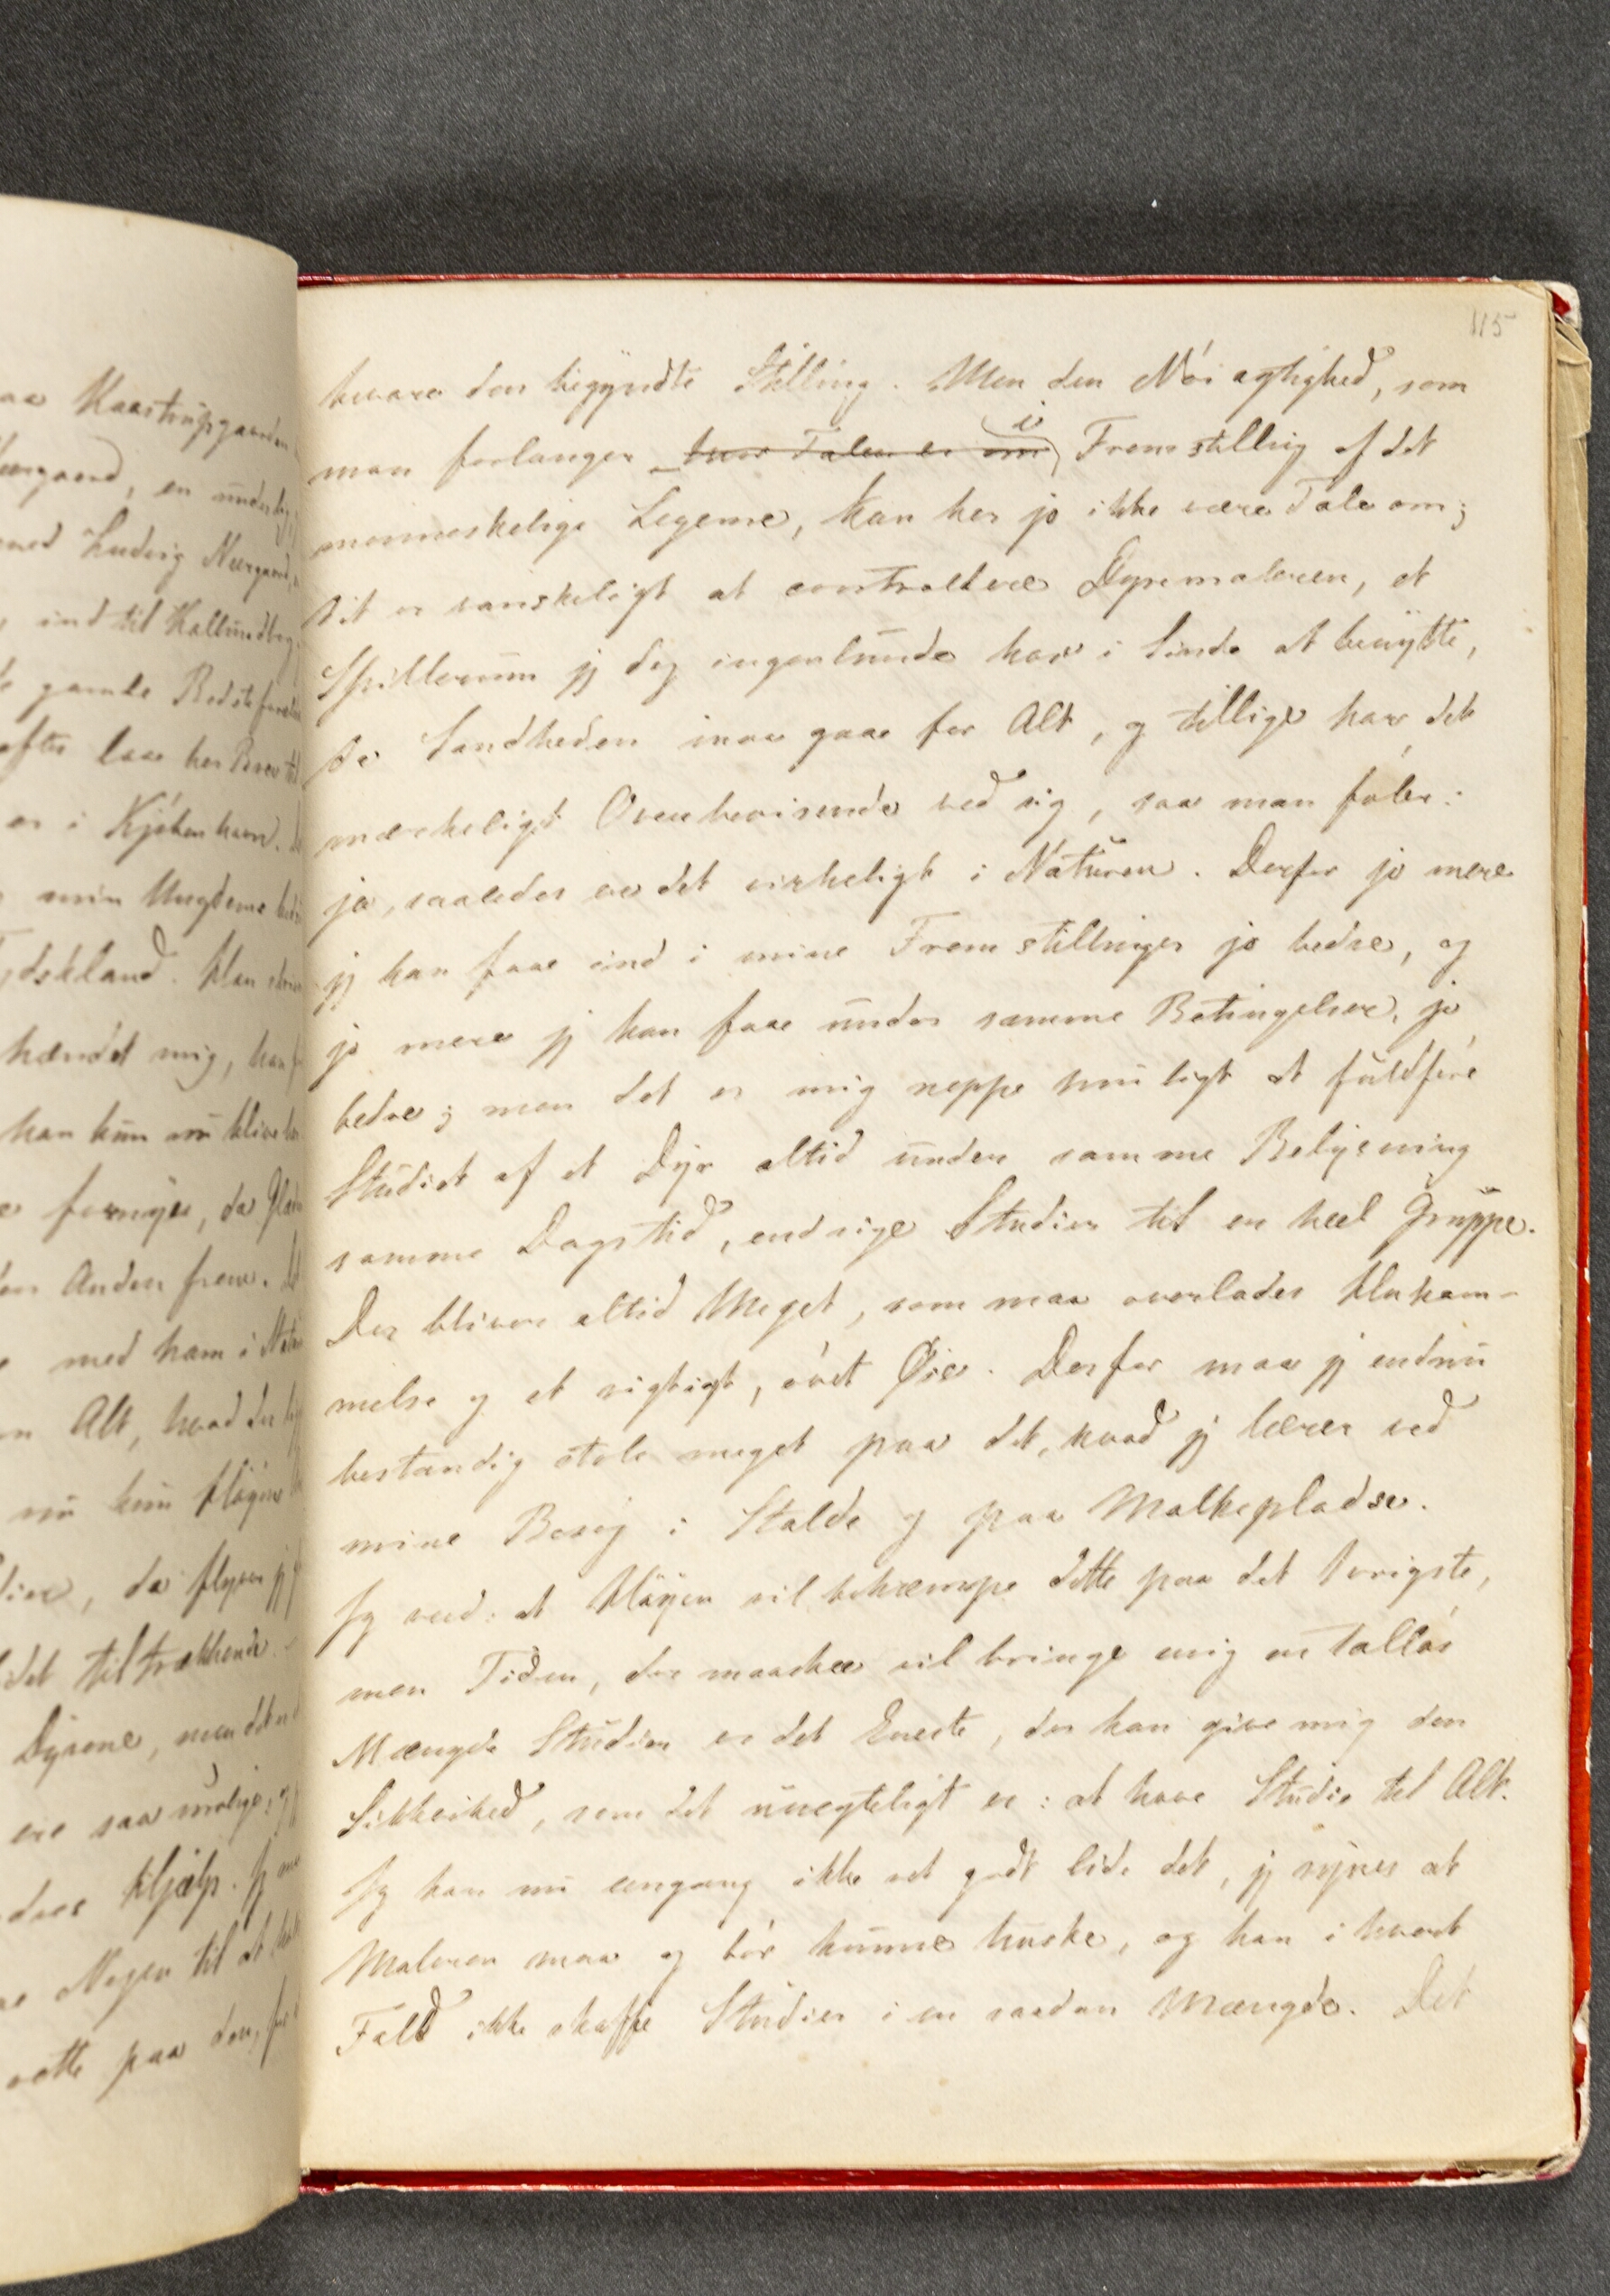 115
bevare den begyndte Stilling. Men den Nøiagtighed, som
man forlanger hvor Talen er om i Fremstilling af det
menneskelige Legeme, kan her jo ikke være Tale om;
det er vanskeligt at controllere Dyremaleren, et
Spillerum jeg dog ingenlunde har i Sinde at benytte,
da Sandheden maa gaae for Alt, og tillige har det
mærkeligt Overbevisende ved sig, saa man føler:
ja, saaledes er det virkeligt i Naturen. Derfor jo mere
jeg kan faae ind i mine Fremstillinger jo bedre, og
jo mere jeg kan faae under samme Betingelser, jo
bedre; men det er mig neppe muligt at fuldføre
Studiet af et Dyr altid under samme Belysning
samme Dagstid, endsige Studier til en heel Gruppe.
Der bliver altid Meget, som maa overlades Hukom-
melse og et rigtigt, øvet Øie. Derfor maa jeg endnu
bestandig stole meget paa det, hvad jeg lærer ved
mine Besøg i Stalde og paa Malkepladse.
Jeg veed: at Høyen vil bekæmpe dette paa det Ivrigste,
men Tiden, der maaskee vil bringe mig en talløs
Mængde Studier er det Eneste, der kan give mig den
Sikkerhed, som det unegteligt er: at have Studie til Alt.
Jeg kan nu engang ikke ret godt lide det, jeg synes at
Maleren maa og bør kunne huske, og kan i hvert
Fald ikke skaffe Studier i en saadan Mængde. Det
aa Kaastrupgaarden
ned Ludvig Neergaard,
, ind til Kallundborg
gamle Bedsteforældre
er i Kjøbenhavn.
min Ungdoms
Tydskland. Han
hændet mig, han
han kun nu blive
fornyes, da
den Anden frem.
med ham i
Alt, hvad der
nu kun Høyen
da flyer jeg
det tiltrækkende
Dyrene, men det er
ere saa urolige, og
Hjælp. Jeg
Nogen til at
rette paa den, for